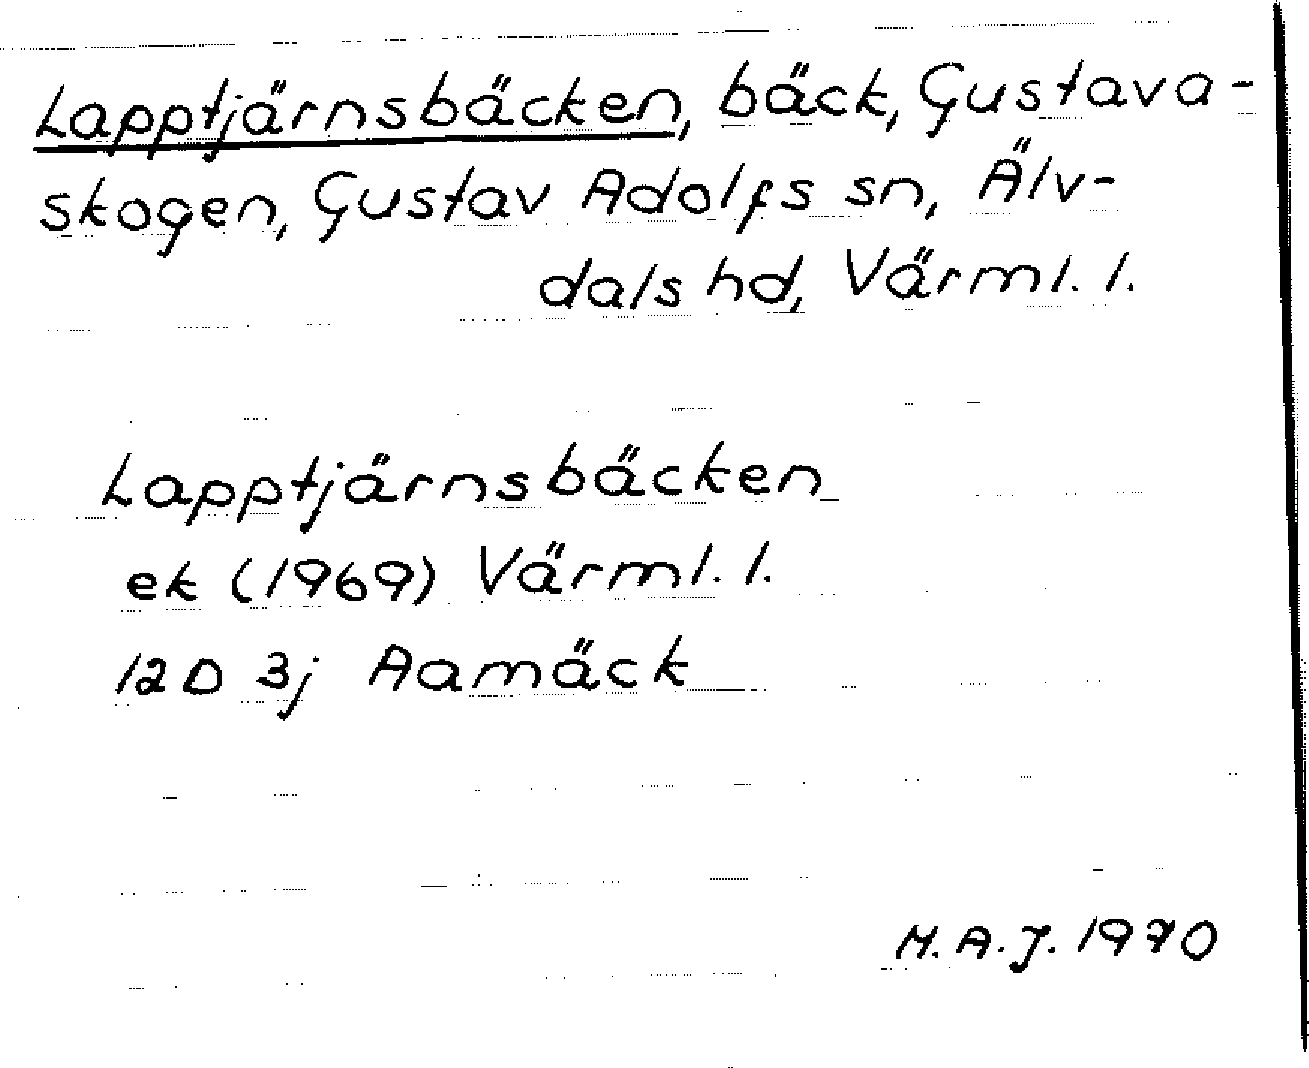 Lapptjärnsbäcken, bäck, Gustava-
skogen, Gustav Adolfs sn, Älv-
dals hd, Värml. l.
Lapptjärnsbäcken
ek (1969) Värml. l.
12D 3j Aamäck
M.A.J. 1970